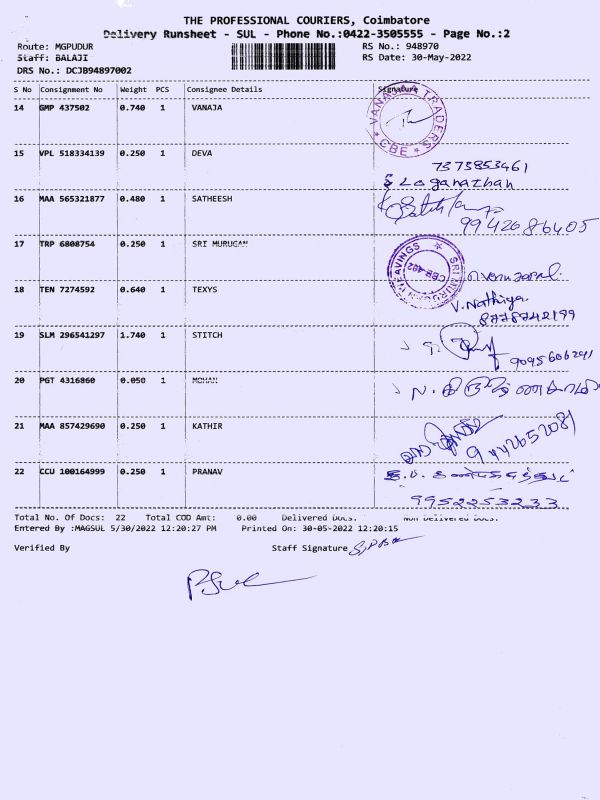 THE PROFESSIONAL COURIERS, Coimbatore
Delivery Runsheet - SUL - Phone No.:0422-3505555 - Page No.:2
Route: MGPUDUR RS No.: 948970
Staff: BALAJI RS Date: 30-May-2022
DRS No.: DCJB94897002
S No Consignment No Weight PCS Consignee Details Signature
14 GMP 437502 0.740 1 VANAJA
VANAJA TRADERS * CBE *
15 VPL 518334139 0.250 1 DEVA
7373853461
S Loganathan
16 MAA 565321877 0.480 1 SATHEESH
9942686405
17 TRP 6808754 0.250 1 SRI MURUGAN
SRI MURUGAN WEAVINGS
18 TEN 7274592 0.640 1 TEXYS
V. Nathiya
8778742199
19 SLM 296541297 1.740 1 STITCH
9095606291
20 PGT 4316860 0.050 1 MOHAN
21 MAA 857429690 0.250 1 KATHIR
9442652081
22 CCU 100164999 0.250 1 PRANAV
9952253233
Total No. Of Docs: 22 Total COD Amt: 0.00 Delivered Docs. Non Delivered Docs.
Entered By :MAGSUL 5/30/2022 12:20:27 PM Printed On: 30-05-2022 12:20:15
Verified By Staff Signature